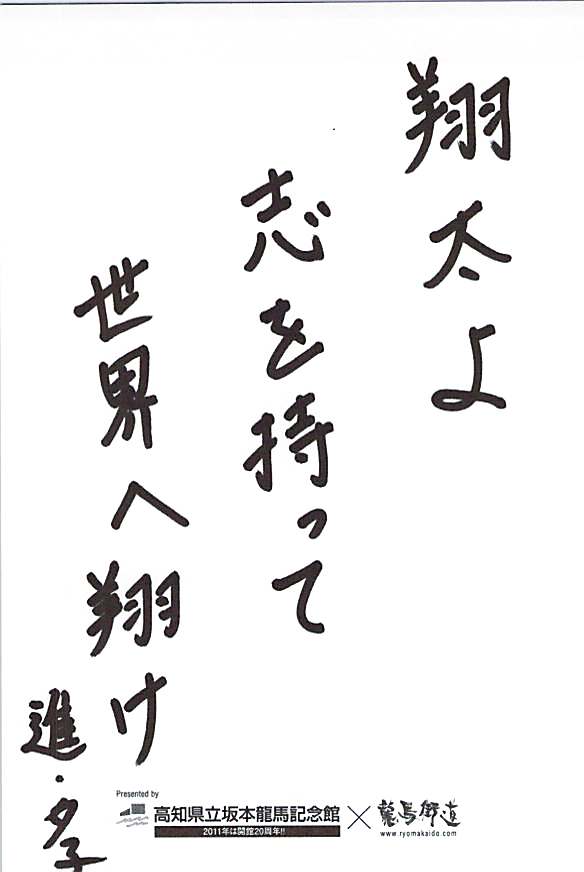 翔太よ
志を持って
世界へ翔け
進・夕子
Presented by
高知県立坂本龍馬記念館
2011年は開館20周年!!
×
龍馬街道
www.ryomakaido.com